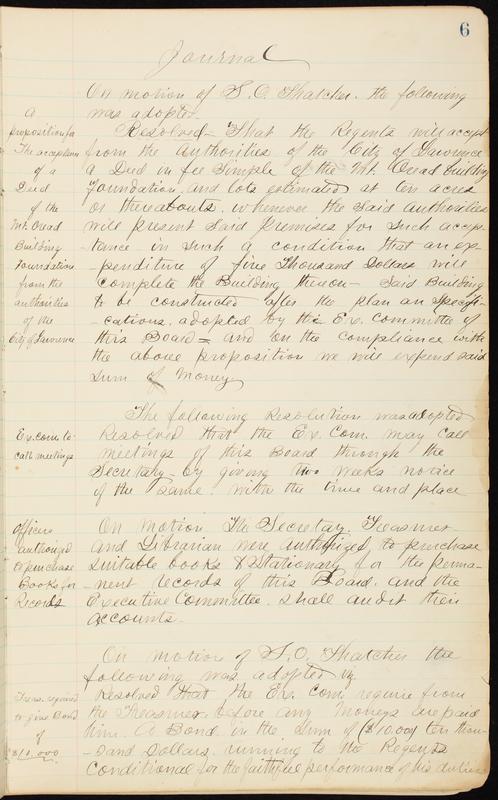 6
Journal
On motion of S. O. Thatcher. the following
was adopted.
A
proposition for
The acceptance
of a
Deed
of the
Mt. Oread
Building
Foundation
from the
authorities
of the
City of Lawrence
Resolved - That the Regents will accept
from the authorities of the City of Lawrence
a Deed in fee Simple of the Mt. Oread building
Foundation, and lots estimated at ten acres
or thereabouts. whenever the Said authorities
will present said premises for such accep-
-tance in such a condition that an ex-
-penditure of five Thousand Dollars will
complete the Building thereon - Said Building
to be constructed after the plan an Specifi-
-cations, adopted by the Ex. Committee of
this Board - and on the compliance with
the above proposition we will expend said
sum of Money
Ex. com. to
call meetings
The following Resolution was adopted
Resolved that the Ex. Com. may call
meetings of this Board through the
Secretary - by giving two weeks notice
of the same. with the time and place
Officers
authorized
to purchase
Books for
Records
On Motion The Secretary. Treasurer
and Librarian were authorized to purchase
suitable books & Stationary for the perma-
-nent records of this Board. and the
Executive Committee. shall audit their
accounts.
Treas. required
to give Bond
of
$10.000
On motion of S. O. Thatcher the
following was adopted viz
Resolved that the Ex. Com. require from
the Treasurer before any Moneys are paid
him. A Bond in the Sum of ($10.000) ten thou-
-sand dollars. running to the Regents
conditional for the faithful performance of his duties